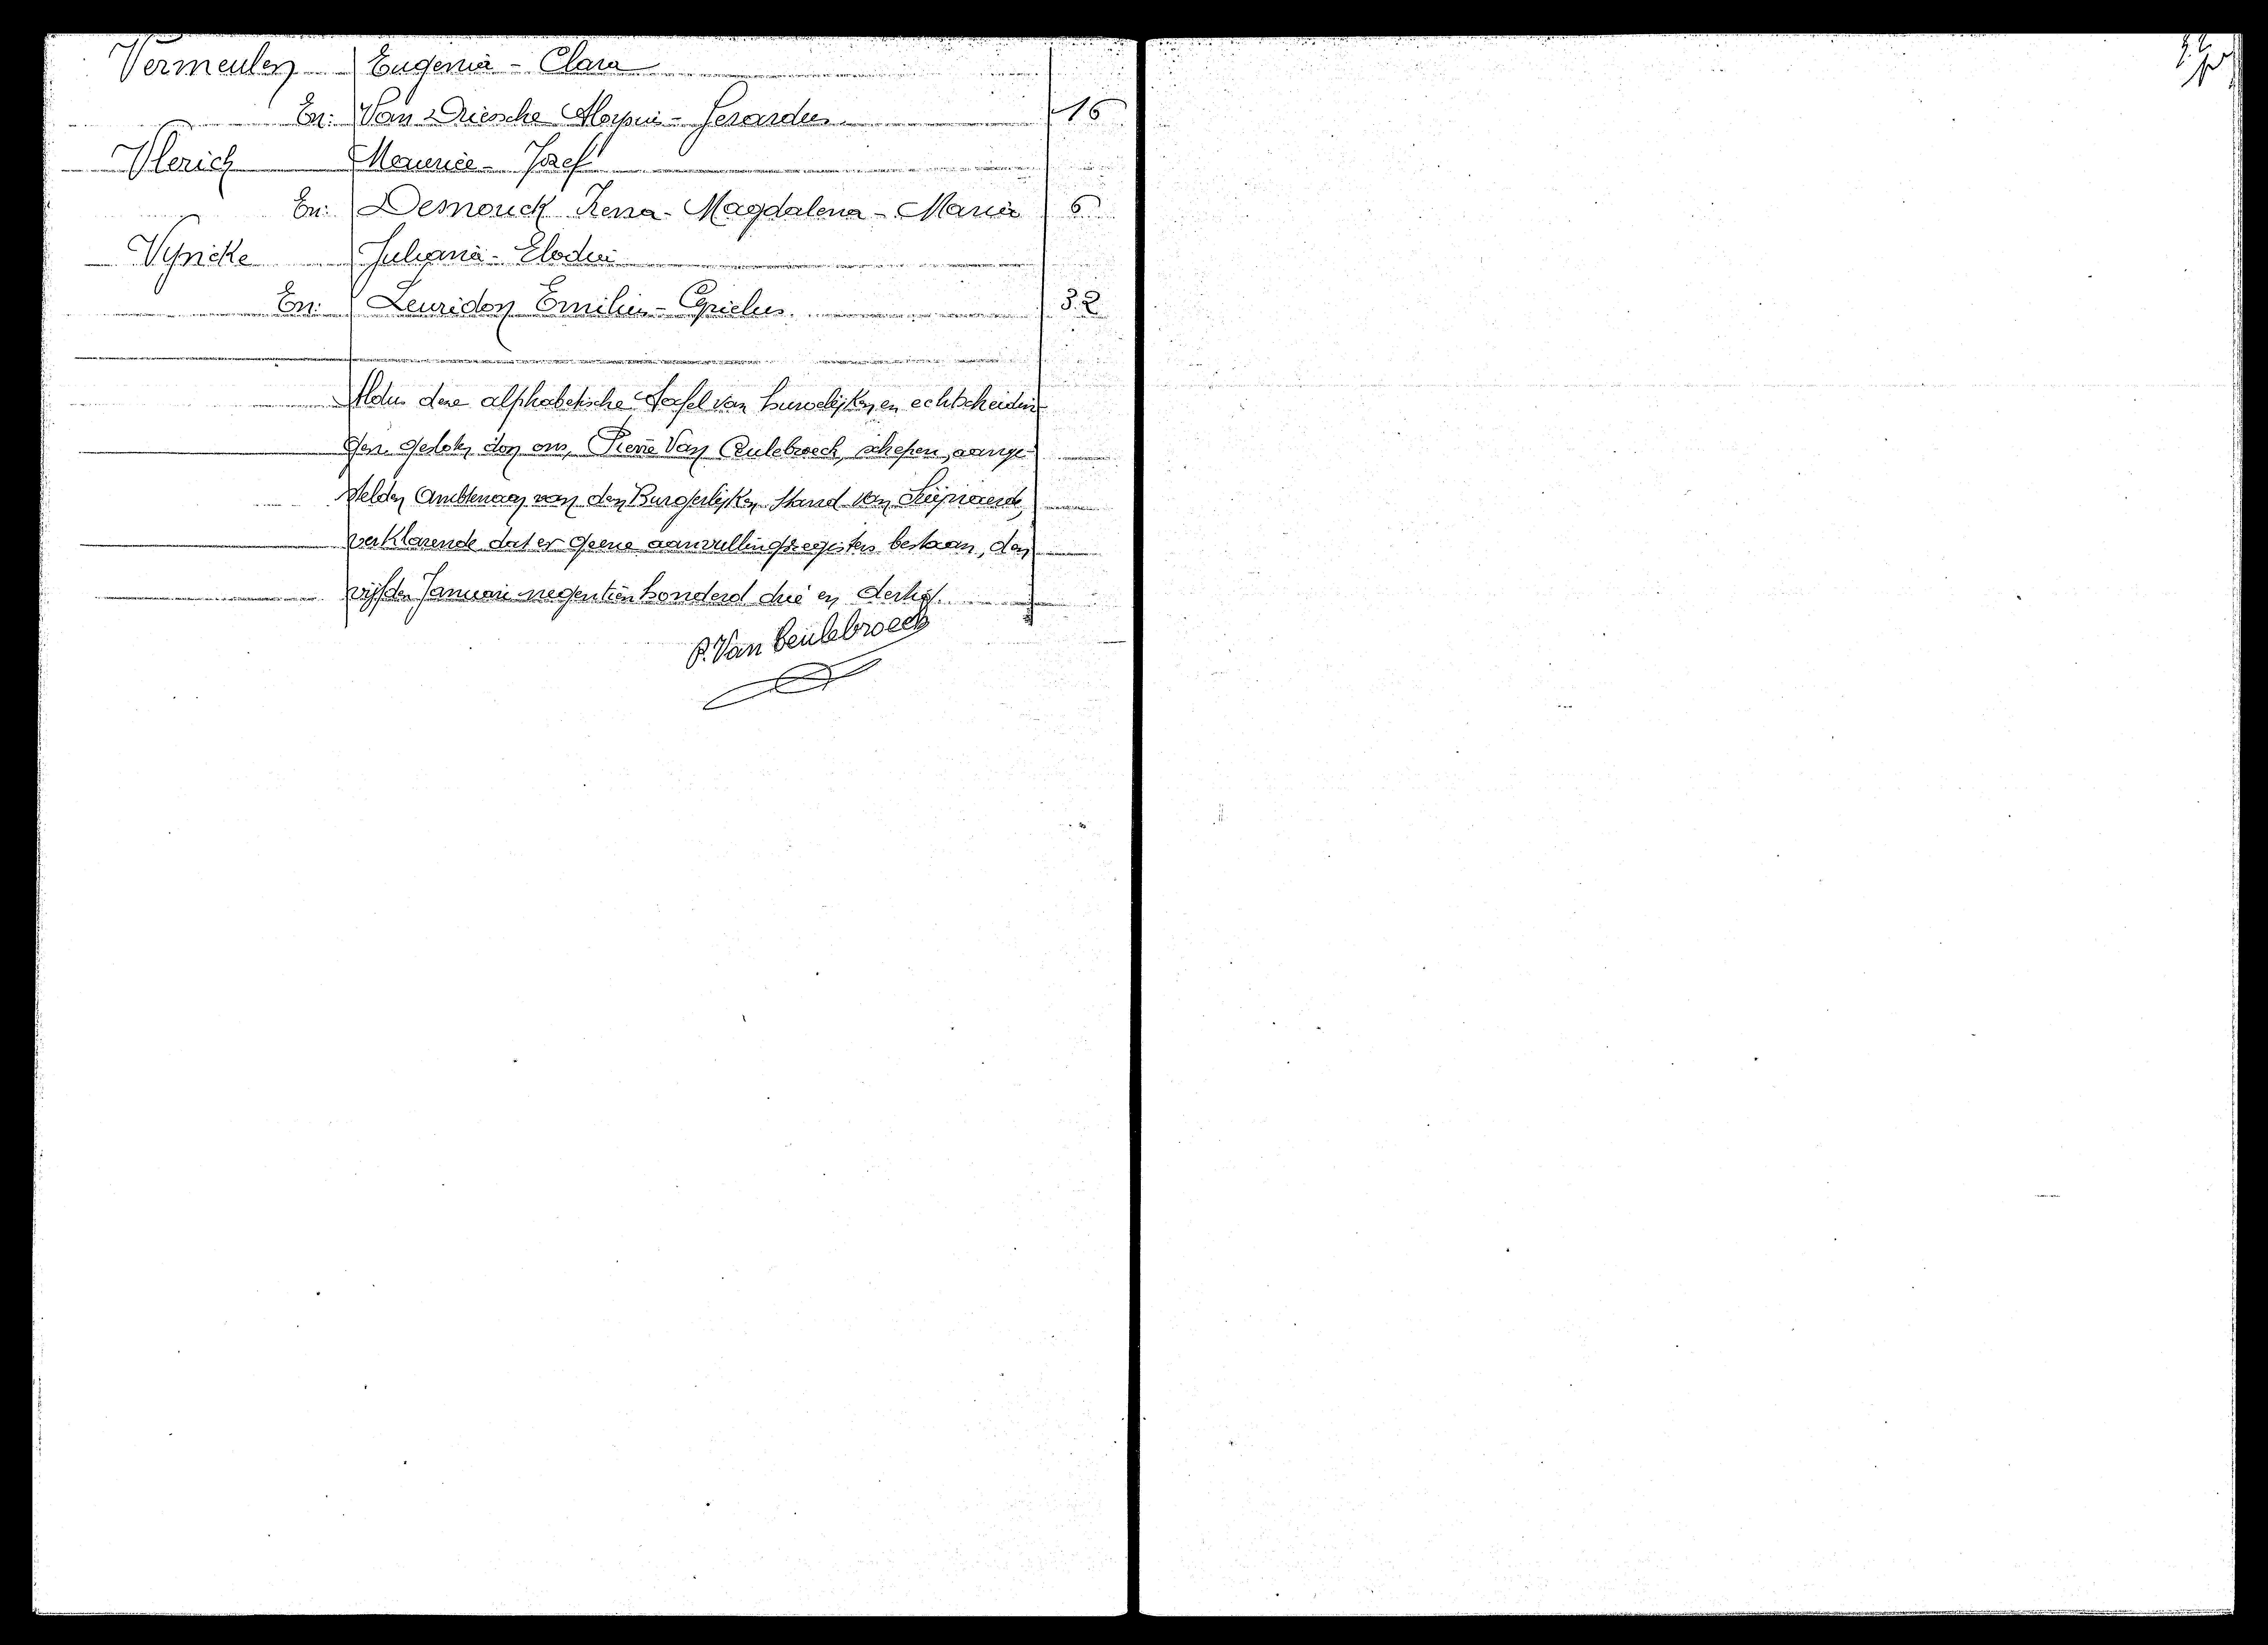 Vermeulen Eugenia - Clara
En: Van Driesche Aloysius - Gerardus 16
Vlerick Maurice - Jozef
En: Desmouck Irena - Magdalena - Maria 6
Vyncke Juliana - Elodia
En: Leuridon Emilius - Cyrielus 32
Aldus deze alphabetische Tafel van huwelijken en echtscheidin-
gen gesloten door ons, Pierre Van Ceulebroeck, schepen, aange-
stelden Ambtenaar van den Burgerlijken Stand van
verklarende dat er geene aanvullingsregisters bestaan, den
vijfden Januari negentien honderd drie en dertig.
P. Van Ceulebroeck